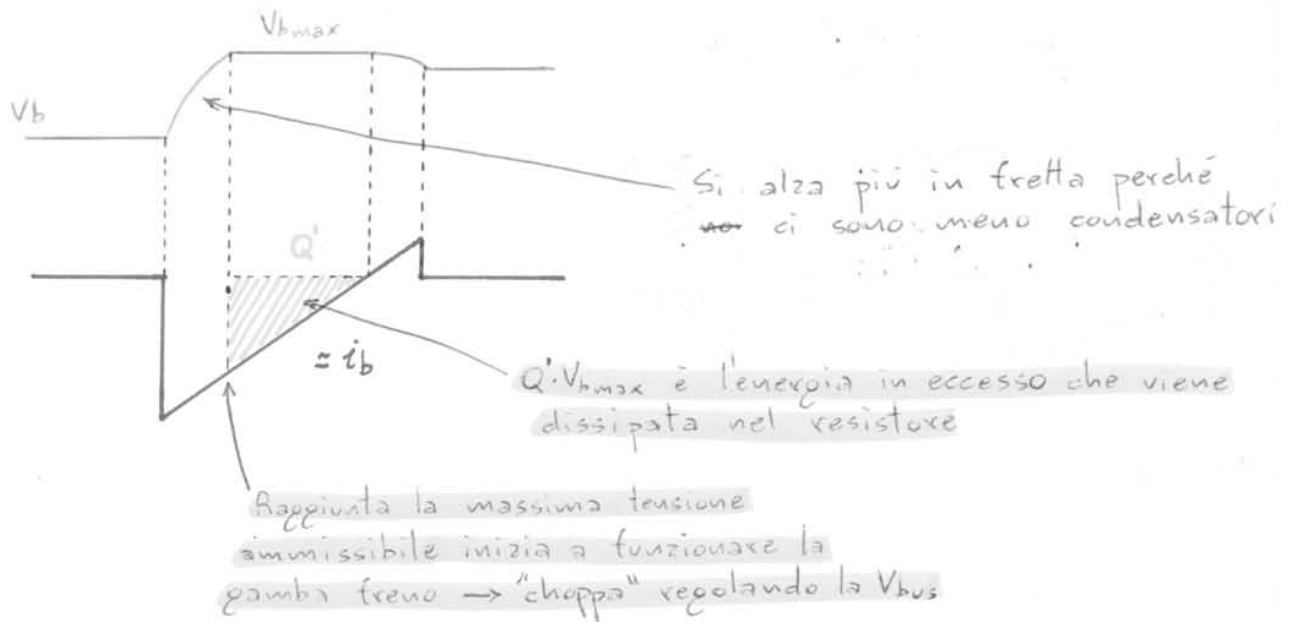 Vbmax
Vb
Si alza più in fretta perché
no ci sono meno condensatori
Q'
≃ ib
Q'·Vbmax è l'energia in eccesso che viene
dissipata nel resistore
Raggiunta la massima tensione
ammissibile inizia a funzionare la
gamba freno → "choppa" regolando la Vbus